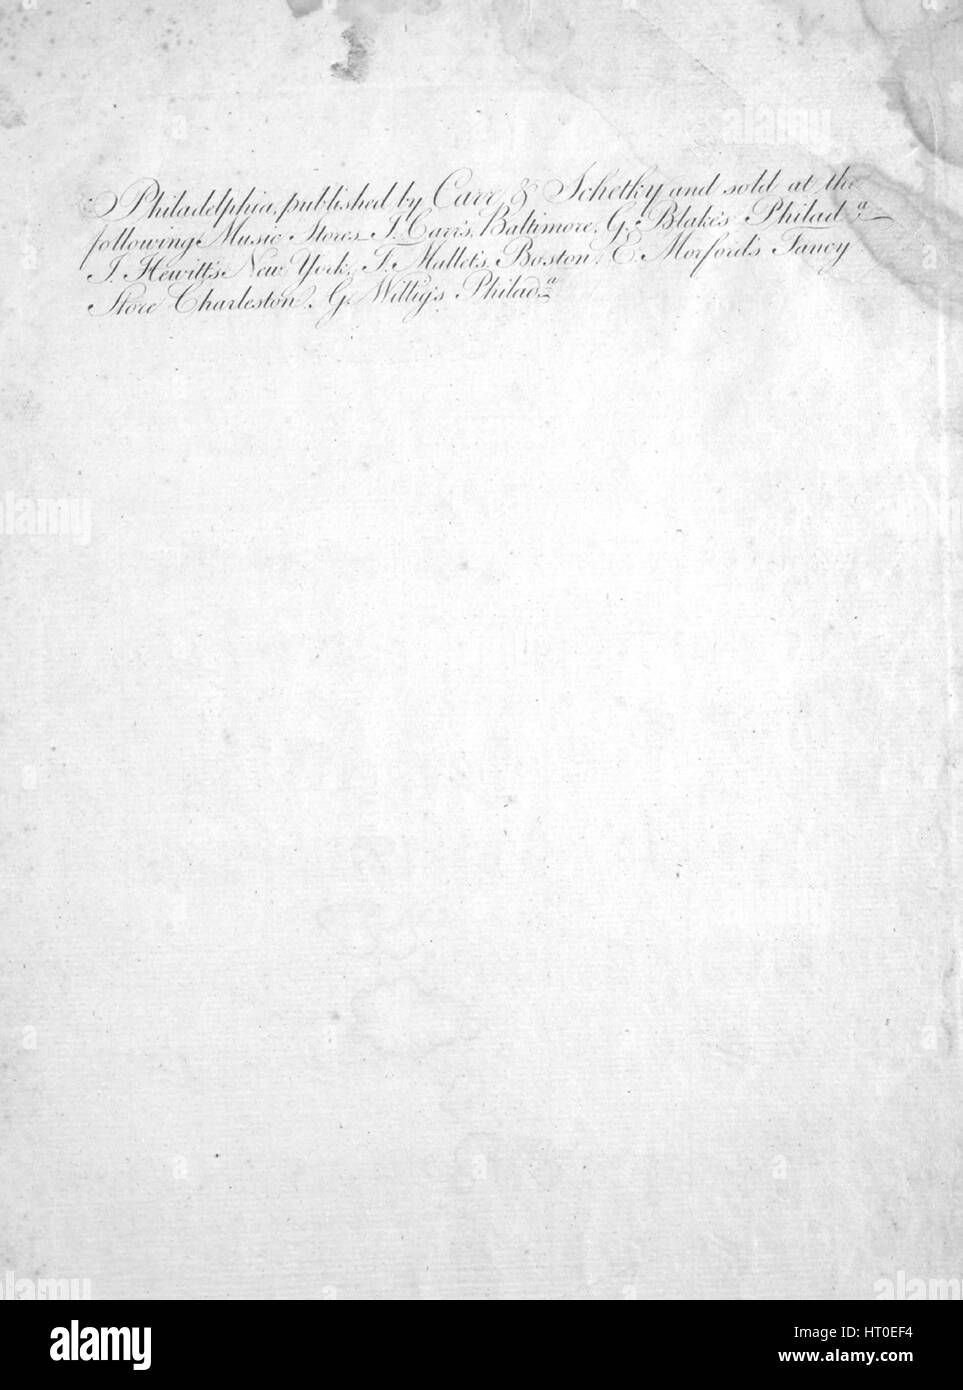 Philadelphia, published by Carr & Schetky and sold at the
following Music Stores J. Carr's, Baltimore, G. Blake's Philad.a
J. Hewitt's New York, F. Mallet's, Boston, E. Morford's Fancy
Store Charleston, G. Willig's Philad.a
alamy
Image ID: HT0EF4
www.alamy.com